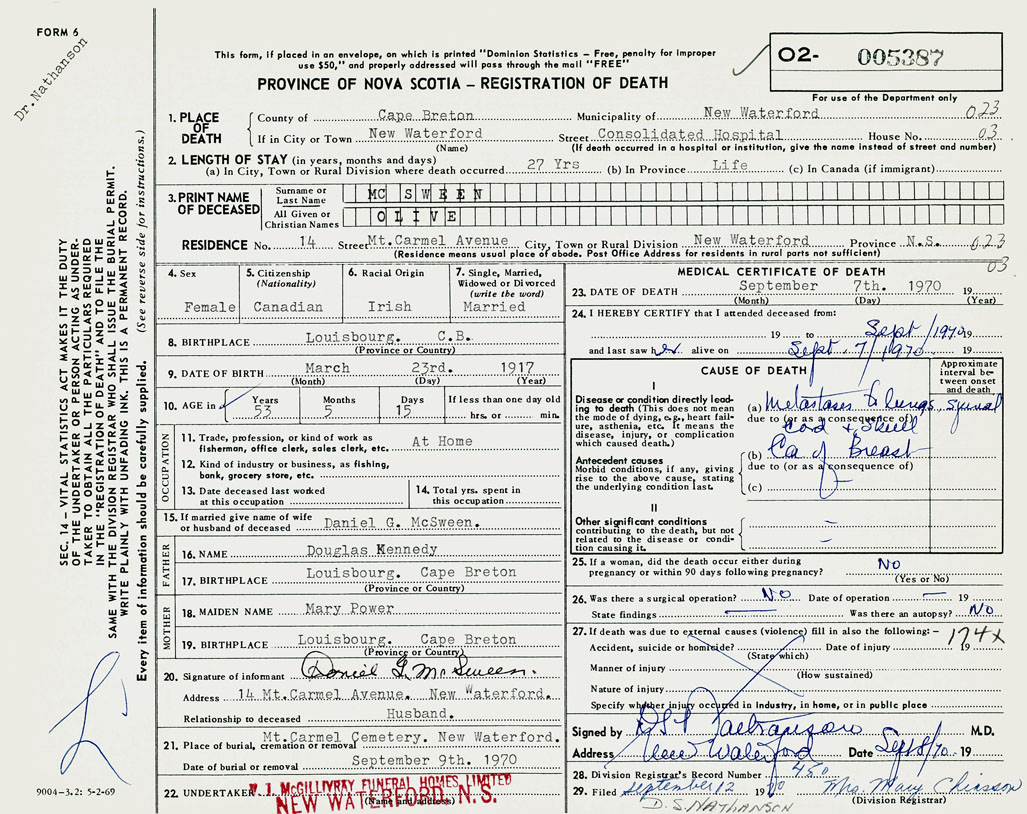 FORM 6
Dr. Nathanson
This form, if placed in an envelope, on which is printed "Dominion Statistics — Free, penalty for improper
use $50," and properly addressed will pass through the mail "FREE"
O2- 005387
For use of the Department only
PROVINCE OF NOVA SCOTIA — REGISTRATION OF DEATH
SEC. 14 — VITAL STATISTICS ACT MAKES IT THE DUTY
OF THE UNDERTAKER OR PERSON ACTING AS UNDER-
TAKER TO OBTAIN ALL THE PARTICULARS REQUIRED
IN THE "REGISTRATION OF DEATH" AND TO FILE THE
SAME WITH THE DIVISION REGISTRAR WHO SHALL ISSUE THE BURIAL PERMIT.
WRITE PLAINLY WITH UNFADING INK. THIS IS A PERMANENT RECORD.
Every item of information should be carefully supplied. (See reverse side for instructions.)
1. PLACE OF DEATH
County of Cape Breton Municipality of New Waterford 023
If in City or Town New Waterford Street Consolidated Hospital House No. 03
(Name) (If death occurred in a hospital or institution, give the name instead of street and number)
2. LENGTH OF STAY (in years, months and days)
(a) In City, Town or Rural Division where death occurred 27 Yrs (b) In Province Life (c) In Canada (if immigrant)
3. PRINT NAME OF DECEASED
Surname or Last Name MC SWEEN
All Given or Christian Names OLIVE
RESIDENCE No. 14 Street Mt.Carmel Avenue City, Town or Rural Division New Waterford Province N.S. 023
(Residence means usual place of abode. Post Office Address for residents in rural parts not sufficient) 03
4. Sex Female
5. Citizenship (Nationality) Canadian
6. Racial Origin Irish
7. Single, Married, Widowed or Divorced (write the word) Married
8. BIRTHPLACE Louisbourg. C.B.
(Province or Country)
9. DATE OF BIRTH March 23rd. 1917
(Month) (Day) (Year)
10. AGE in Years 53 Months 5 Days 15 If less than one day old hrs. or min.
OCCUPATION
11. Trade, profession, or kind of work as fisherman, office clerk, sales clerk, etc. At Home
12. Kind of industry or business, as fishing, bank, grocery store, etc.
13. Date deceased last worked at this occupation
14. Total yrs. spent in this occupation
15. If married give name of wife or husband of deceased Daniel G. McSween.
FATHER
16. NAME Douglas Kennedy
17. BIRTHPLACE Louisbourg. Cape Breton
(Province or Country)
MOTHER
18. MAIDEN NAME Mary Power
19. BIRTHPLACE Louisbourg. Cape Breton
(Province or Country)
20. Signature of informant Daniel G. McSween.
Address 14 Mt.Carmel Avenue. New Waterford.
Relationship to deceased Husband.
21. Place of burial, cremation or removal Mt.Carmel Cemetery. New Waterford.
Date of burial or removal September 9th. 1970
22. UNDERTAKER McGILLIVRAY FUNERAL HOMES, LIMITED
NEW WATERFORD, N. S.
(Name and address)
9004-3.2: 5-2-69
MEDICAL CERTIFICATE OF DEATH
23. DATE OF DEATH September 7th. 1970 19
(Month) (Day) (Year)
24. I HEREBY CERTIFY that I attended deceased from:
19 to Sept/1970 19
and last saw her alive on Sept. 7/1970 19
CAUSE OF DEATH
Approximate interval between onset and death
I
Disease or condition directly leading to death (This does not mean the mode of dying, e.g., heart failure, asthenia, etc. It means the disease, injury, or complication which caused death.)
(a) Metastases to lungs spinal
due to (or as a consequence of)
cord & skull
Antecedent causes
Morbid conditions, if any, giving rise to the above cause, stating the underlying condition last.
(b) Ca of Breast
due to (or as a consequence of)
(c)
II
Other significant conditions contributing to the death, but not related to the disease or condition causing it.
25. If a woman, did the death occur either during pregnancy or within 90 days following pregnancy? NO
(Yes or No)
26. Was there a surgical operation? NO Date of operation — 19
State findings — Was there an autopsy? NO
27. If death was due to external causes (violence) fill in also the following:— 174X
Accident, suicide or homicide? Date of injury 19
(State which)
Manner of injury
(How sustained)
Nature of injury
Specify whether injury occurred in Industry, in home, or in public place
Signed by Nathanson M.D.
Address New Waterford Date Sept 8/70 19
28. Division Registrar's Record Number 450
29. Filed September 12 1970 Mrs. Mary Chiasson
D.S. NATHANSON (Division Registrar)